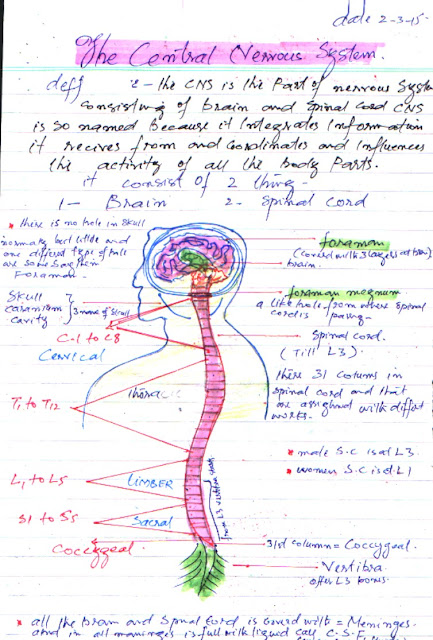 date 2-3-15
The Central Nervous System.
deff :- the CNS is the Part of nervous System
consisting of brain and spinal cord CNS
is so named Because it Integrates Information
it recives from and Coordinates and Influences
the activity of all the body Parts.
it consist of 2 thing -
1- Brain 2- Spinal Cord
* there is no hole in skull
normaly but little and
one diffrent type of
are some
Foraman-
foraman
(covered with 3 layers
brain.
Skull
Caranium
cavity
3 name of skull
foraman megnum
a like hole from where spinal
cord is
C-1 to C8
Cervical
Spinal cord.
(Till L3)
there 31 column in
spinal cord and that
are assighned with diffrt
works-
thoracic
T1 to T12
* male S.C is at L3
* women S.C is at L1
L1 to L5
LIMBER
from L3
S1 to S5
Sacral
Coccygeal
31st column = Coccygeal.
Vertibra
after L3
* all the Brain and Spinal Cord is coverd with = Meninges.
and in all maninges is full with liqued call C.S.F.